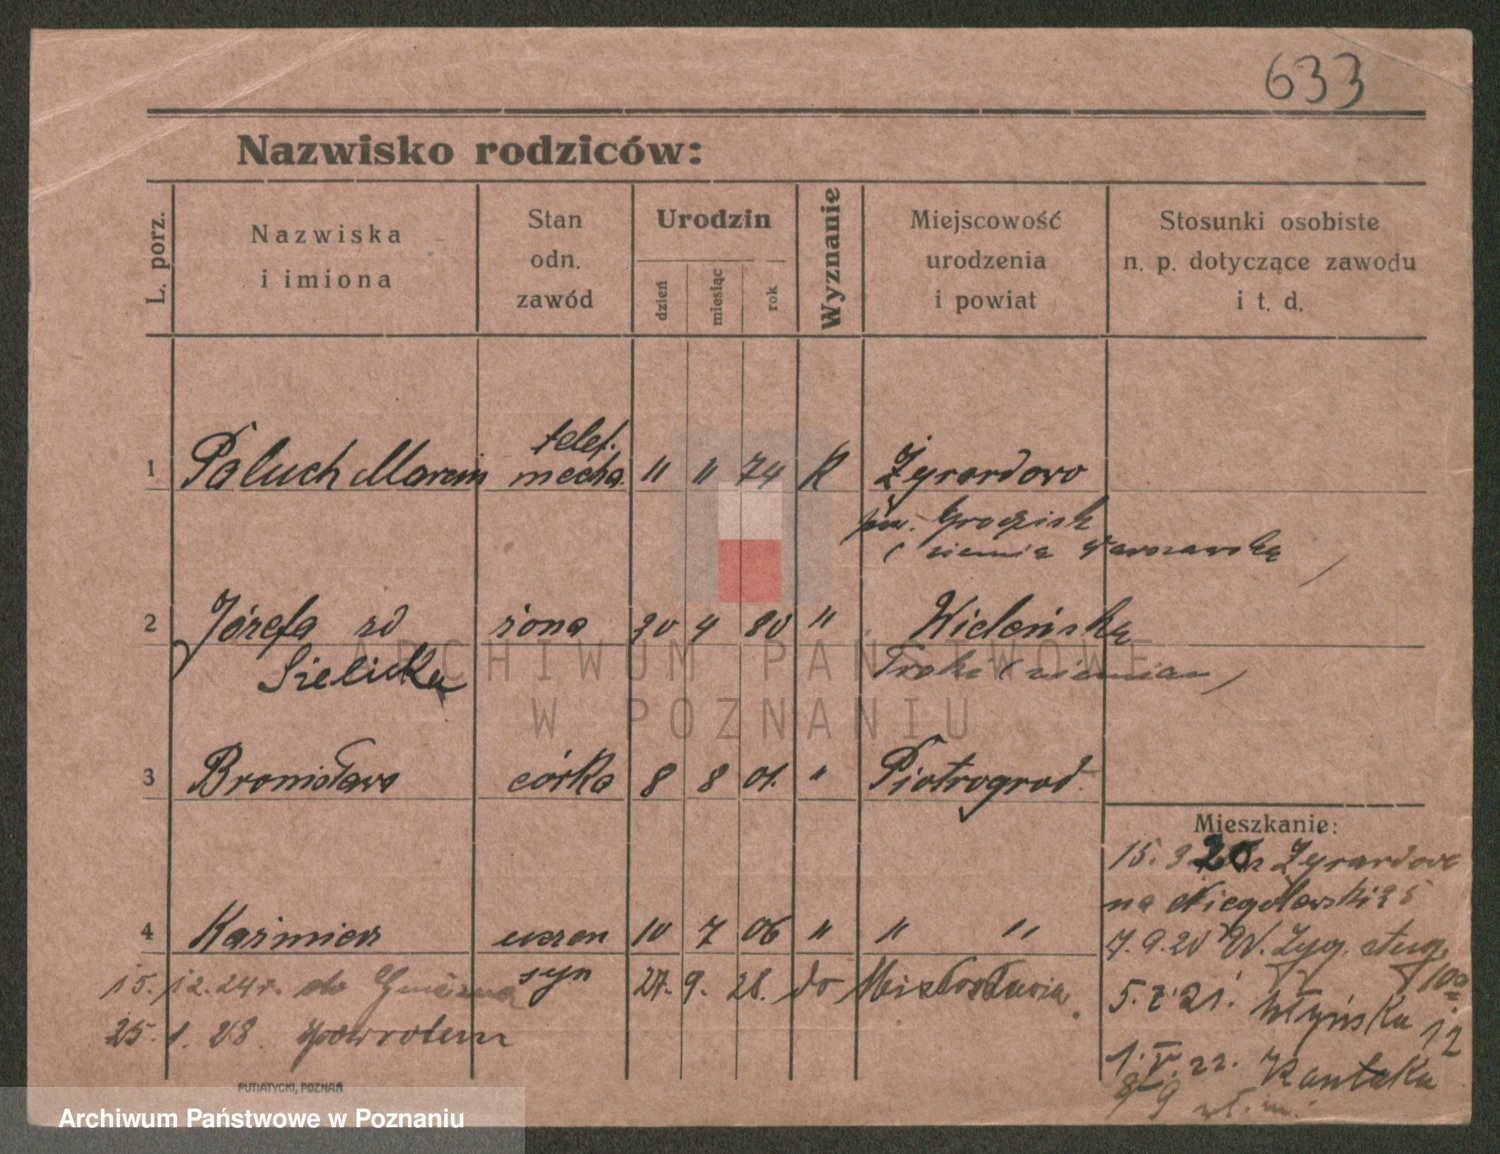 633
Nazwisko rodziców:
L. porz.
Nazwiska
i imiona
Stan
odn.
zawód
Urodzin
dzień
miesiąc
rok
Wyznanie
Miejscowość
urodzenia
i powiat
Stosunki osobiste
n. p. dotyczące zawodu
i t. d.
telef.
1 Paluch Marcin mecha. 11 11 74 K Żyrardowo
pow. Grodzisk
(ziemia Warszawska)
2 Józefa zd żona 30 4 80 " Wileńska
Sielicka Troki (ziemian)
3 Bronisława córka 8 8 01. " Piotrogrod
Mieszkanie:
15. 3 20 z Żyrardowa
na Niegolewskich 5
4 Kaźmierz uczen 10 7 06 " " "
syn
7. 9. 20 W. Zyg. Aug.
15. 12. 24 r. do Gniezna 27. 9. 28. do Miełosławia.
5. 7. 21. Młyńska 12
25. 1. 28. spowrotem
1. V. 22. Kantaka
8/9
PUTIATYCKI, POZNAŃ
ARCHIWUM PAŃSTWOWE
W POZNANIU
Archiwum Państwowe w Poznaniu